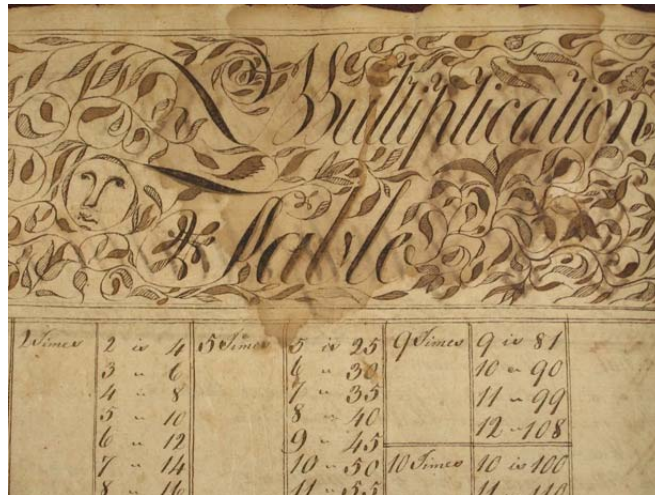 Multiplication
Table
2 Times 2 is 4 5 Times 5 is 25 9 Times 9 is 81
3 " 6 6 " 30 10 " 90
4 " 8 7 " 35 11 " 99
5 " 10 8 " 40 12 " 108
6 " 12 9 " 45
7 " 14 10 " 50 10 Times 10 is 100
8 " 16 11 " 55 11 " 110